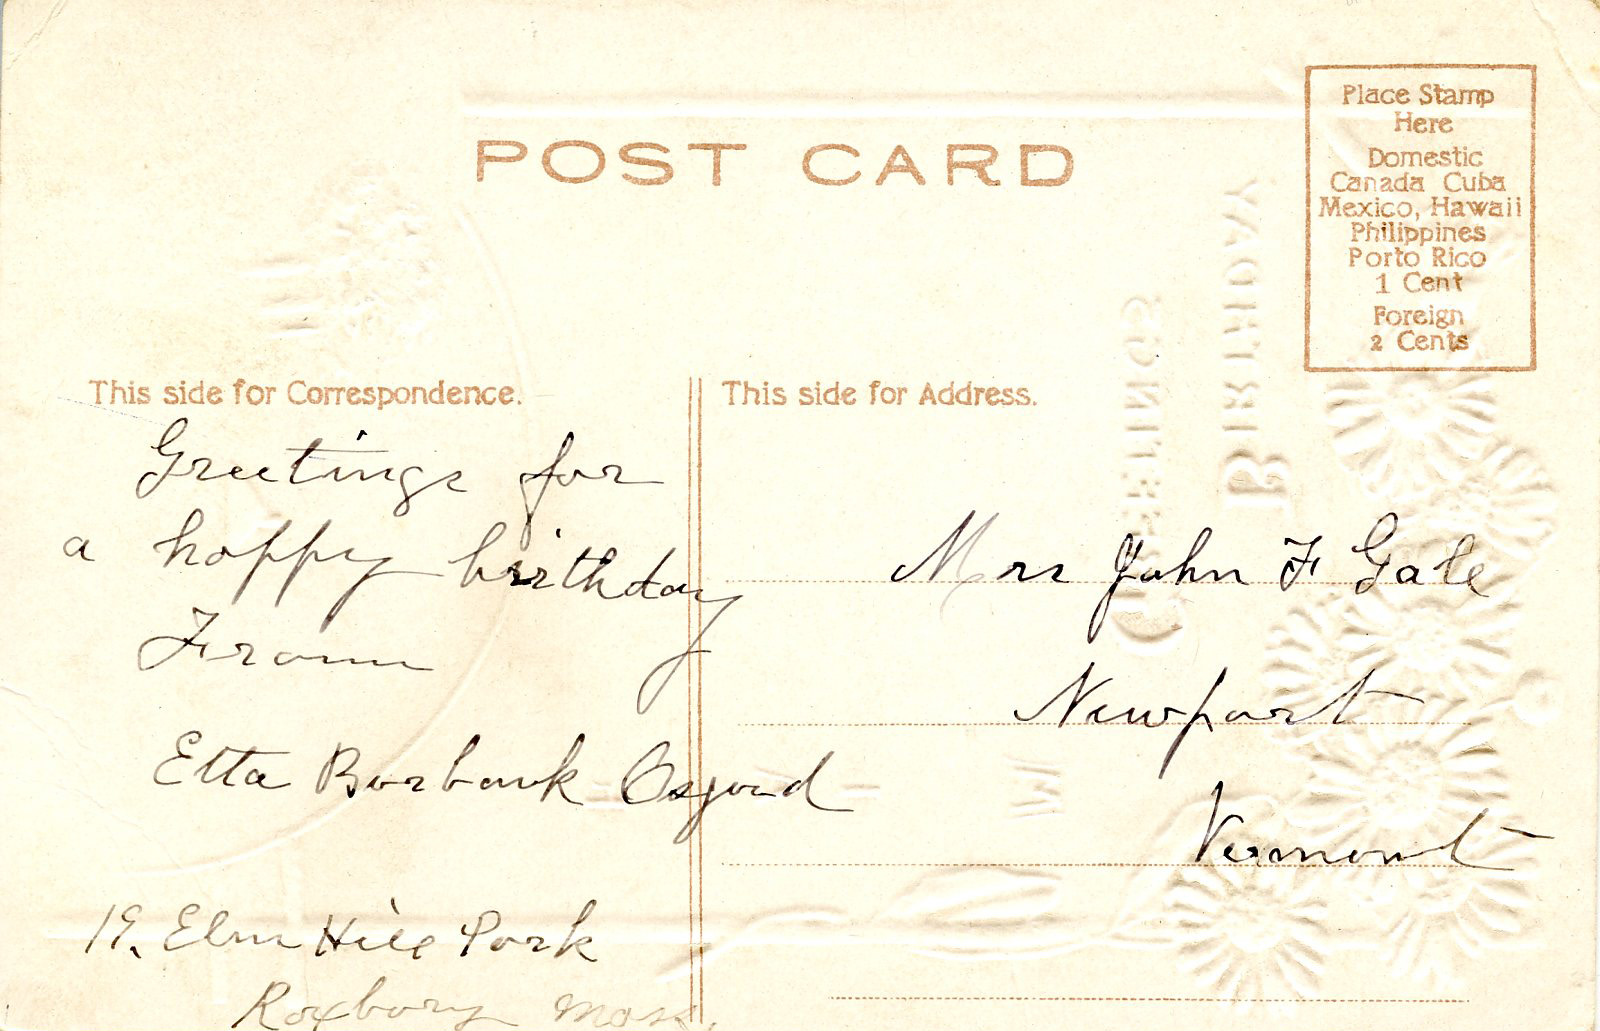 POST CARD
Place Stamp
Here
Domestic
Canada Cuba
Mexico, Hawaii
Philippines
Porto Rico
1 Cent
Foreign
2 Cents
This side for Correspondence.
Greetings for
a happy birthday
From
Etta Burbank Osgood
19. Elm Hill Park
Roxbury Mass.
This side for Address.
Mrs John F Gale
Newport
Vermont
BIRTHDAY
GREETINGS